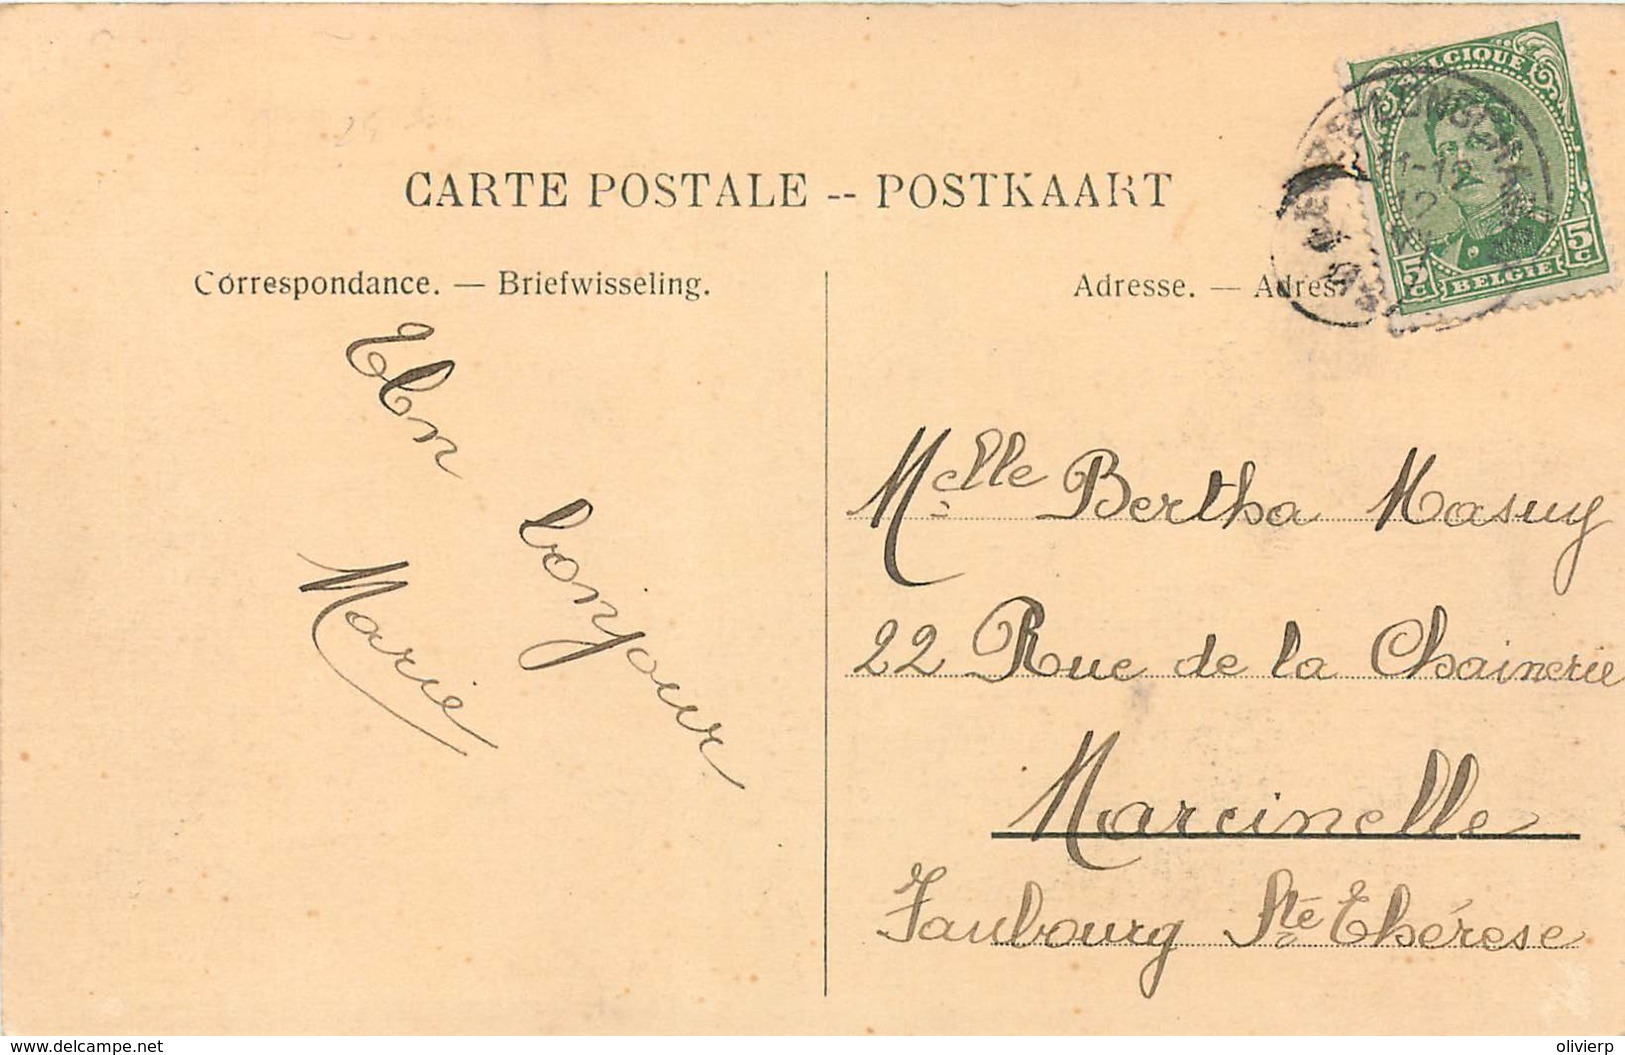 CARTE POSTALE -- POSTKAART
Correspondance. — Briefwisseling.
Adresse. — Adres
BELGIQUE
5c 5c
BELGIË
Un
bonjour
Marie
Melle Bertha Masuy
22 Rue de la Chainerie
Marcinelle
Faubourg Ste Thérèse
www.delcampe.net
olivierp